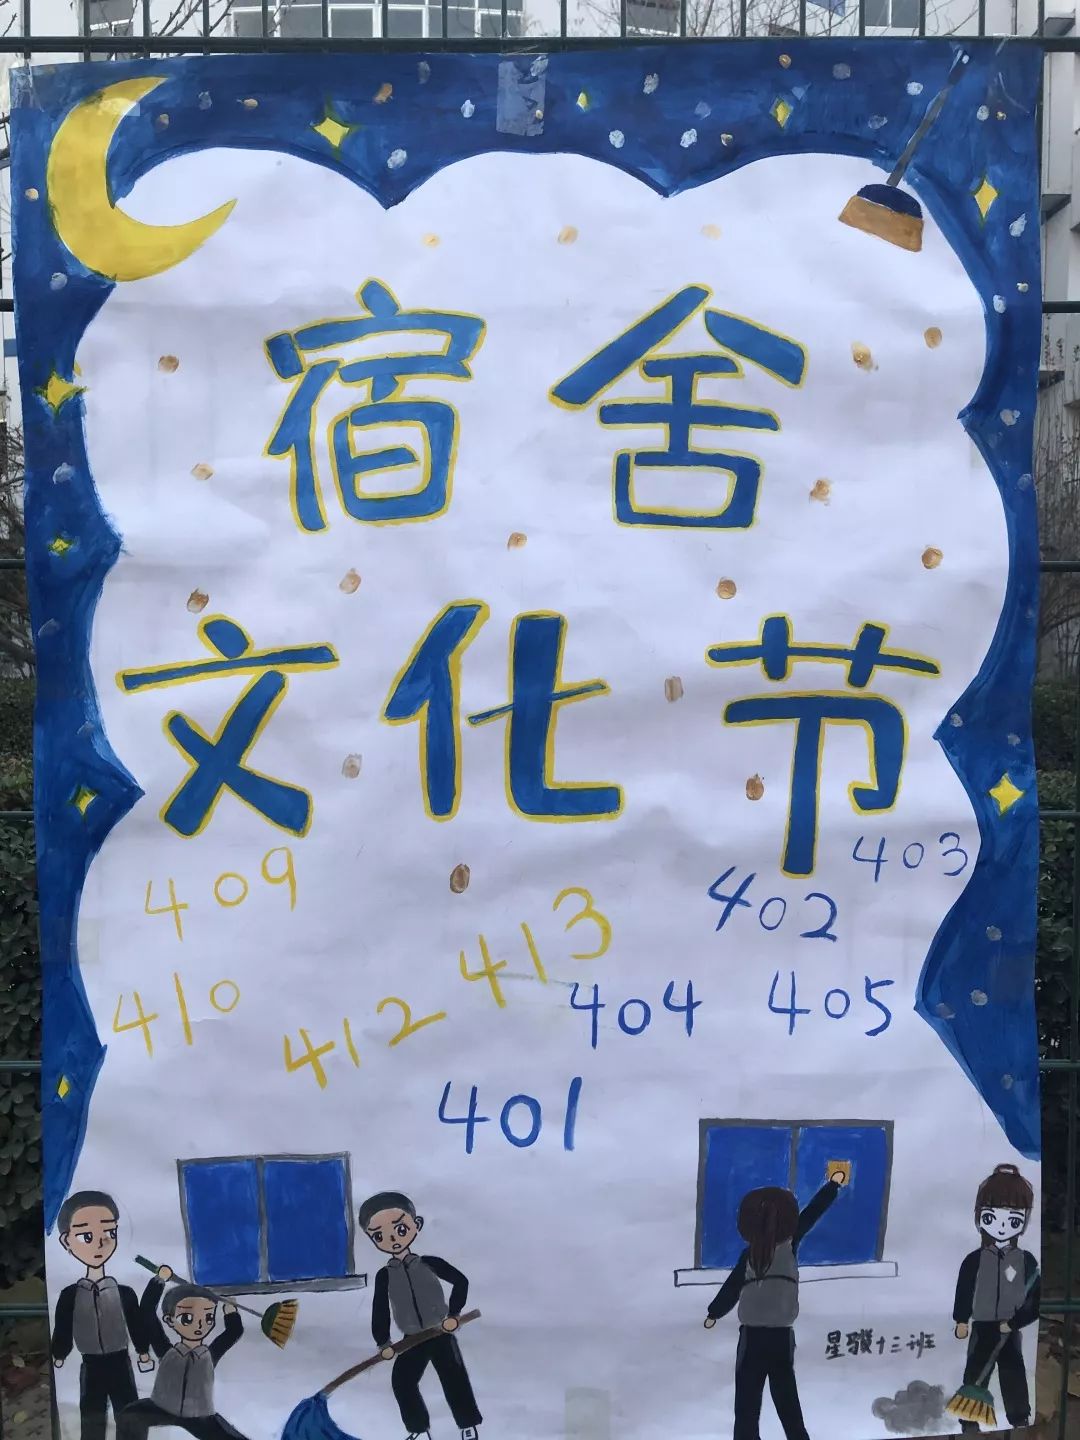 宿舍
文化节
403
409
402
413
410
404
405
412
401
星骏十三班